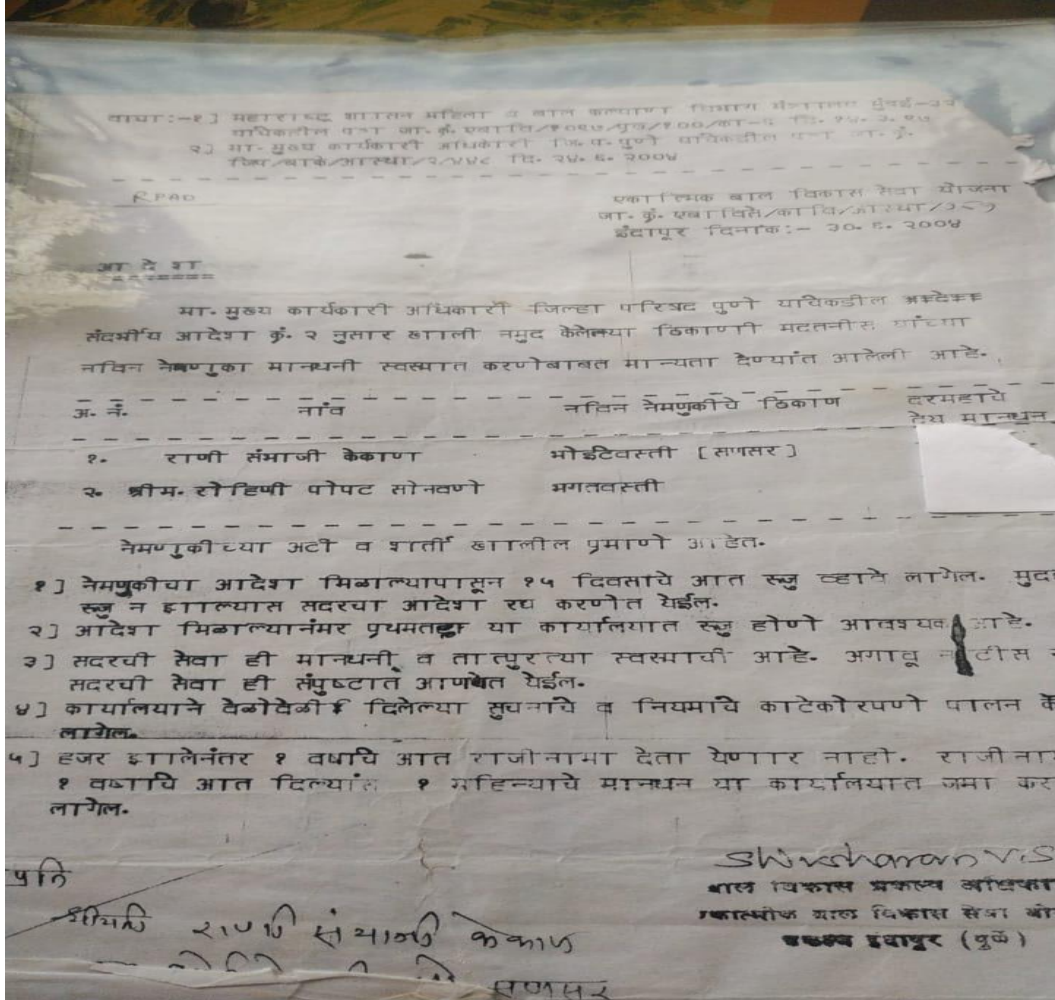 वाचा:-१] महाराष्ट्र शासन महिला व बाल कल्याण विभाग मंत्रालय मुंबई-३२
यांचेकडील पत्र जा. क्रं. एबावि/१०९७/ /१००/का-६ दि. १४. ३. ९७
२] मा. मुख्य कार्यकारी अधिकारी जि. प. पुणे यांचेकडील पत्र जा. क्रं.
जिप/बाक/आस्था/२/४४८ दि. २४. ६. २००४
RPAD
एकात्मिक बाल विकास सेवा योजना
जा. क्रं. एबाविसे/कावि/आस्था/
इंदापूर दिनांक:- ३०. ६. २००४
आ दे श
मा. मुख्य कार्यकारी अधिकारी जिल्हा परिषद पुणे यांचेकडील
संदर्भीय आदेश क्रं. २ नुसार खाली नमुद केलेल्या ठिकाणी मदतनीस यांच्या
नविन नेमणुका मानधनी स्वरूपात करणेबाबत मान्यता देण्यांत आलेली आहे.
अ. नं. नांव नविन नेमणुकीचे ठिकाण दरमहाचे
देय मानधन
१. राणी संभाजी केकाण भोईटेवस्ती [सणसर]
२. श्रीम. रोहिणी पोपट सोनवणे भगतवस्ती
नेमणुकीच्या अटी व शर्ती खालील प्रमाणे आहेत.
१] नेमणुकीचा आदेश मिळाल्यापासून १५ दिवसाचे आत रूजु व्हावे लागेल. मुद
रूजु न झाल्यास सदरचा आदेश रद्य करणेत येईल.
२] आदेश मिळाल्यानंमर प्रथमतहा या कार्यालयात रूजु होणे आवश्यक आहे.
३] सदरची सेवा ही मानधनी व तात्पुरत्या स्वरूपाची आहे. अगावू नोटीस
सदरची सेवा ही संपुष्टात आणणेत येईल.
४] कार्यालयाने वेळोवेळी दिलेल्या सुचनांचे व नियमाचे काटेकोरपणे पालन के
लागेल.
५] हजर झालेनंतर १ वर्षाचे आत राजीनामा देता येणार नाही. राजीना
१ वर्षाचे आत दिल्यांस १ महिन्याचे मानधन या कार्यालयात जमा कर
लागेल.
Shivsharan V.S
बाल विकास प्रकल्प अधिका
एकात्मीक बाल विकास सेवा यो
प्रकल्प इंदापूर (पुणे)
प्रति
श्रीमती राणी संभाजी केकाण
सणसर